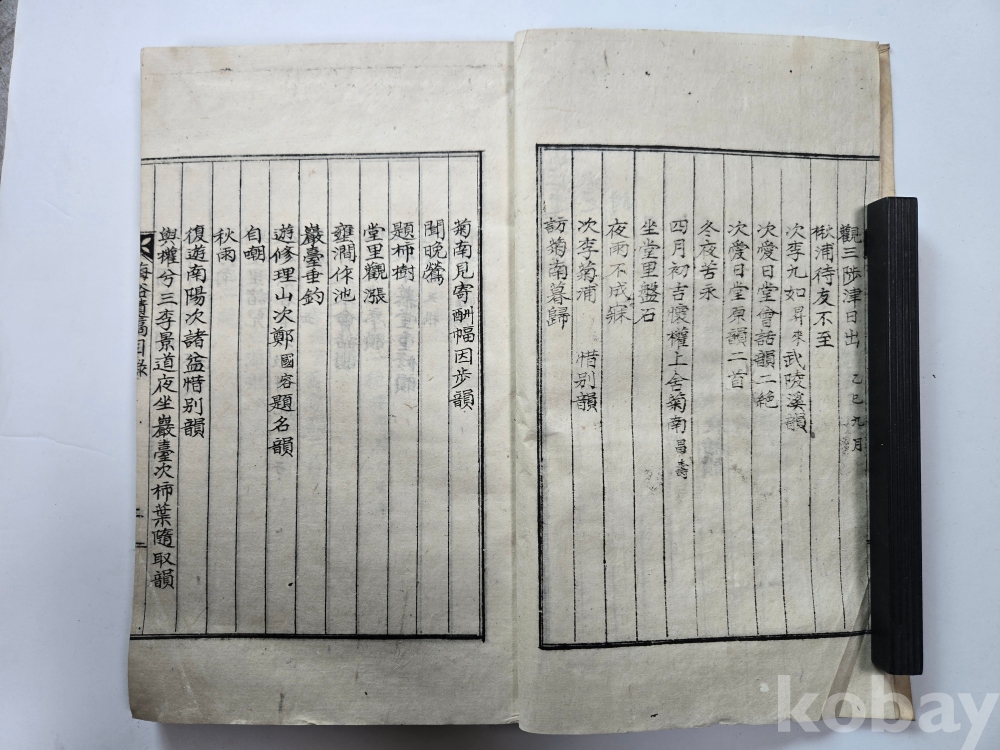 觀三陟津日出 乙巳九月
楸浦待友不至
次李九如昇來武陵溪韻
次愛日堂會話韻二絶
次愛日堂原韻二首
冬夜苦永
四月初吉懷權上舍菊南昌壽
坐堂里盤石
夜雨不成寐
次李菊浦 惜別韻
訪菊南暮歸
菊南見寄酬幅因步韻
聞晩鶯
題柿樹
堂里觀漲
壅澗作池
巖臺垂釣
遊修理山次鄭國容題名韻
自嘲
秋雨
復遊南陽次諸益惜別韻
與權兮三李景道夜坐巖臺次柿葉隨取韻
遺稿目錄
二
kobay